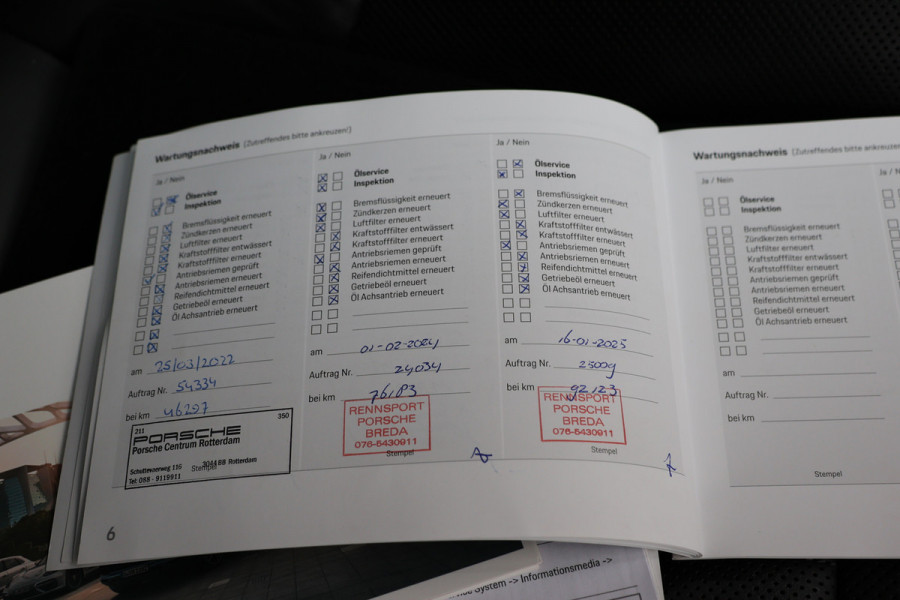 Wartungsnachweis (Zutreffendes bitte ankreuzen!)
Ja / Nein
Ölservice
Inspektion
Bremsflüssigkeit erneuert
Zündkerzen erneuert
Luftfilter erneuert
Kraftstofffilter entwässert
Kraftstofffilter erneuert
Antriebsriemen geprüft
Antriebsriemen erneuert
Reifendichtmittel erneuert
Getriebeöl erneuert
Öl Achsantrieb erneuert
am 25/03/2022
Auftrag Nr. 54334
bei km 46207
211 350
PORSCHE
Porsche Centrum Rotterdam
Schuttevaerweg 116 3044 BB Rotterdam
Stempel
Tel: 088 - 9119911
6
Ja / Nein
Ölservice
Inspektion
Bremsflüssigkeit erneuert
Zündkerzen erneuert
Luftfilter erneuert
Kraftstofffilter entwässert
Kraftstofffilter erneuert
Antriebsriemen geprüft
Antriebsriemen erneuert
Reifendichtmittel erneuert
Getriebeöl erneuert
Öl Achsantrieb erneuert
am 01-02-2024
Auftrag Nr. 24034
bei km 76183
RENNSPORT
PORSCHE
BREDA
076-5430911
Stempel
Ja / Nein
Ölservice
Inspektion
Bremsflüssigkeit erneuert
Zündkerzen erneuert
Luftfilter erneuert
Kraftstofffilter entwässert
Kraftstofffilter erneuert
Antriebsriemen geprüft
Antriebsriemen erneuert
Reifendichtmittel erneuert
Getriebeöl erneuert
Öl Achsantrieb erneuert
am 16-01-2025
Auftrag Nr. 25009
bei km 92123
RENNSPORT
PORSCHE
BREDA
076-5430911
Stempel
Wartungsnachweis (Zutreffendes bitte ankreuzen
Ja / Nein
Ölservice
Inspektion
Bremsflüssigkeit erneuert
Zündkerzen erneuert
Luftfilter erneuert
Kraftstofffilter entwässert
Kraftstofffilter erneuert
Antriebsriemen geprüft
Antriebsriemen erneuert
Reifendichtmittel erneuert
Getriebeöl erneuert
Öl Achsantrieb erneuert
am
Auftrag Nr.
bei km
Stempel
Ja / N
System -> Informationsmedia ->